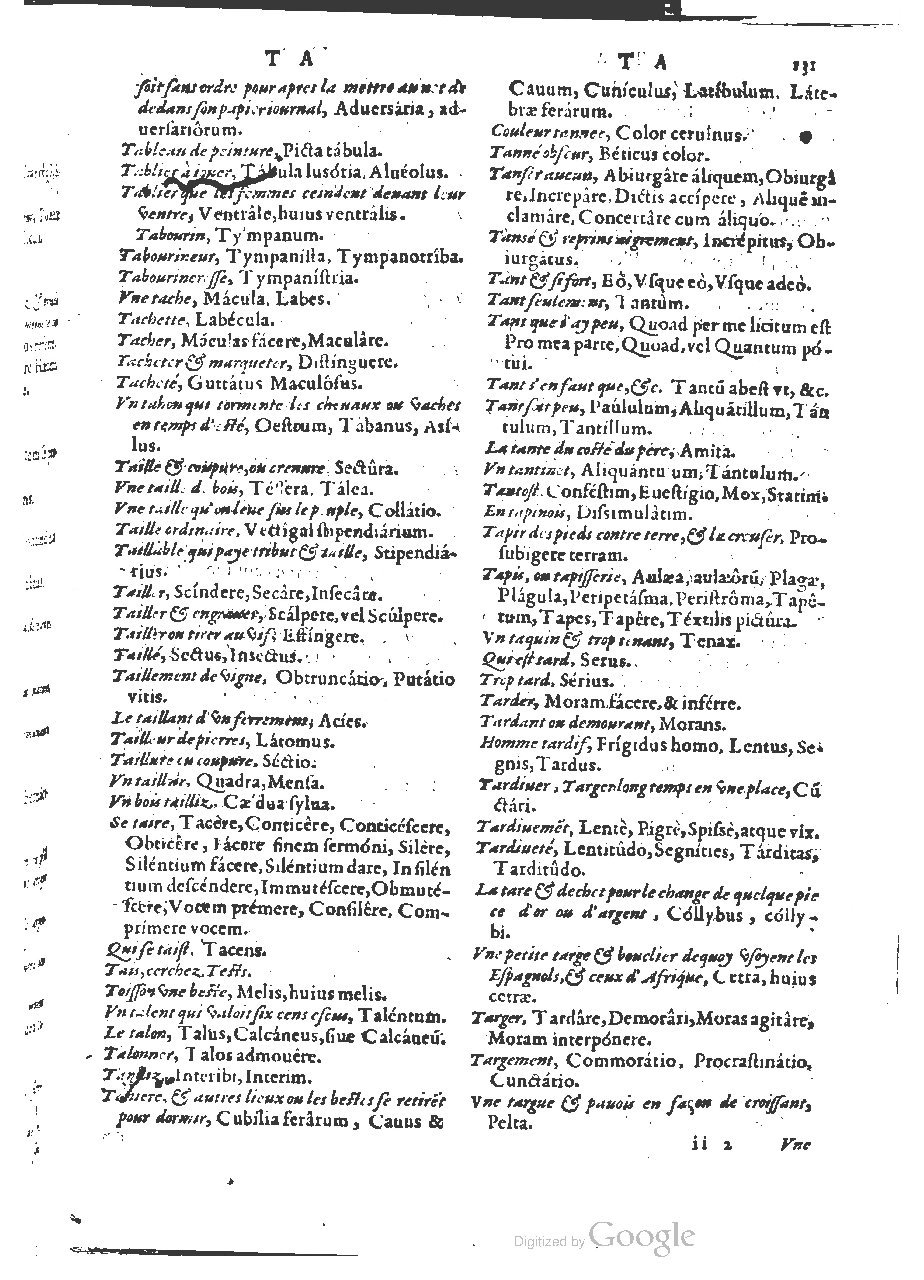 T A
soit sans ordre pour apres la mettre au net de
dedans son papier iournal, Aduersária, ad-
uersariôrum.
Tableau de peinture, Picta tábula.
Tablier à iouer, Tábula lusória, Aluéolus.
Tablier que les femmes ceindent deuant leur
ventre, Ventrâle, huius ventrális.
Tabourin, Ty'mpanum.
Tabourineur, Tympanista, Tympanotríba.
Tabourineresse, Tympanístria.
Vne tache, Mácula, Labes.
Tachette, Labécula.
Tacher, Máculas fácere, Maculâre.
Tacheter & marqueter, Distínguere.
Tacheté, Guttátus Maculôsus.
Vn tahon qui tormente les cheuaux ou vaches
en temps d'esté, Oestrum, Tábanus, Así-
lus.
Taille & coupure, ou crenure, Sectûra.
Vne taille de bois, Téssera, Tálea.
Vne taille qu'on leue sus le peuple, Collátio.
Taille ordinaire, Vectígal stipendiárium.
Taillable qui paye tribut & taille, Stipendiá-
rius.
Tailler, Scíndere, Secâre, Insecâre.
Tailler & engrauer, Scálpere, vel Scúlpere.
Tailler ou tirer au vif, Effíngere.
Taillé, Sectus, Insectus.
Taillement de vigne, Obtruncátio, Putátio
vitis.
Le taillant d'vn ferrement, Acíes.
Tailleur de pierres, Látomus.
Taillure ou coupure, Séctio.
Vn tailloir, Quadra, Mensa.
Vn bois tailliz, Cædua sylua.
Se taire, Tacère, Conticêre, Conticéscere,
Obticêre, Fácere finem sermóni, Silère,
Siléntium fácere, Siléntium dare, In silén
tium descéndere, Immutéscere, Obmuté-
scere, Vocem prémere, Consilêre, Com-
primere vocem.
Qui se taist, Tacens.
Tais, cerchez Tests.
Toisson vne beste, Melis, huius melis.
Vn talent qui valoit six cens escus, Taléntum.
Le talon, Talus, Calcáneus, siue Calcáneū.
Talonner, Talos admouêre.
Interibi, Interim.
Taniere, & autres lieux ou les bestes se retirēt
pour dormir, Cubília ferârum, Cauus &
T A
131
Cauum, Cunículus, Latíbulum, Láte-
bræ ferárum.
Couleur tannee, Color ceruínus.
Tanné obscur, Béticus color.
Tanser aucun, Abiurgâre áliquem, Obiurgâ
re, Increpâre, Dictis accípere, Aliquē in-
clamáre, Concertâre cum áliquo.
Tansé & reprins aigrement, Incrépitus, Ob-
iurgátus.
Tant & si fort, Eò, Vsque eò, Vsque adeò.
Tant seulement, Tantùm.
Tant que i'ay peu, Quoad per me lícitum est
Pro mea parte, Quoad, vel Quantum pó-
tui.
Tant s'en faut que, &c. Tantū abest vt, &c.
Tant soit peu, Paúlulum, Aliquántillum, Tán
tulum, Tantillum.
La tante du costé du pere, Amita.
Vn tantinet, Aliquántulum, Tántulum.
Tantost, Conféstim, Euestígio, Mox, Statim.
En tapinois, Dissimulátim.
Tapir des pieds contre terre, & la creuser, Pro-
subigere terram.
Tapis, ou tapisserie, Aulæa, aulæôrū, Plaga,
Plágula, Peripetásma, Peristrôma, Tapê-
tum, Tapes, Tapête, Téxtilis pictûra.
Vn taquin & trop tenant, Tenax.
Qui est tard, Serus.
Trop tard, Sérius.
Tarder, Moram fácere, & inférre.
Tardant ou demourant, Morans.
Homme tardif, Frígidus homo, Lentus, Se-
gnis, Tardus.
Tardiuer, Targer long temps en vne place, Cū
ctári.
Tardiuemēt, Lentè, Pigrè, Spissè, atque vix.
Tardiueté, Lentitûdo, Segníties, Tárditas,
Tarditûdo.
La tare & dechet pour le change de quelque pie
ce d'or ou d'argent, Cóllybus, cólly-
bi.
Vne petite targe & bouclier dequoy vsoyent les
Espagnols, & ceux d'Afrique, Cetra, huius
cetræ.
Targer, Tardâre, Demorâri, Moras agitâre,
Moram interpónere.
Targement, Commorátio, Procrastinátio,
Cunctátio.
Vne targue & pauois en façon de croissant,
Pelta.
ii 2 Vne
Digitized by Google